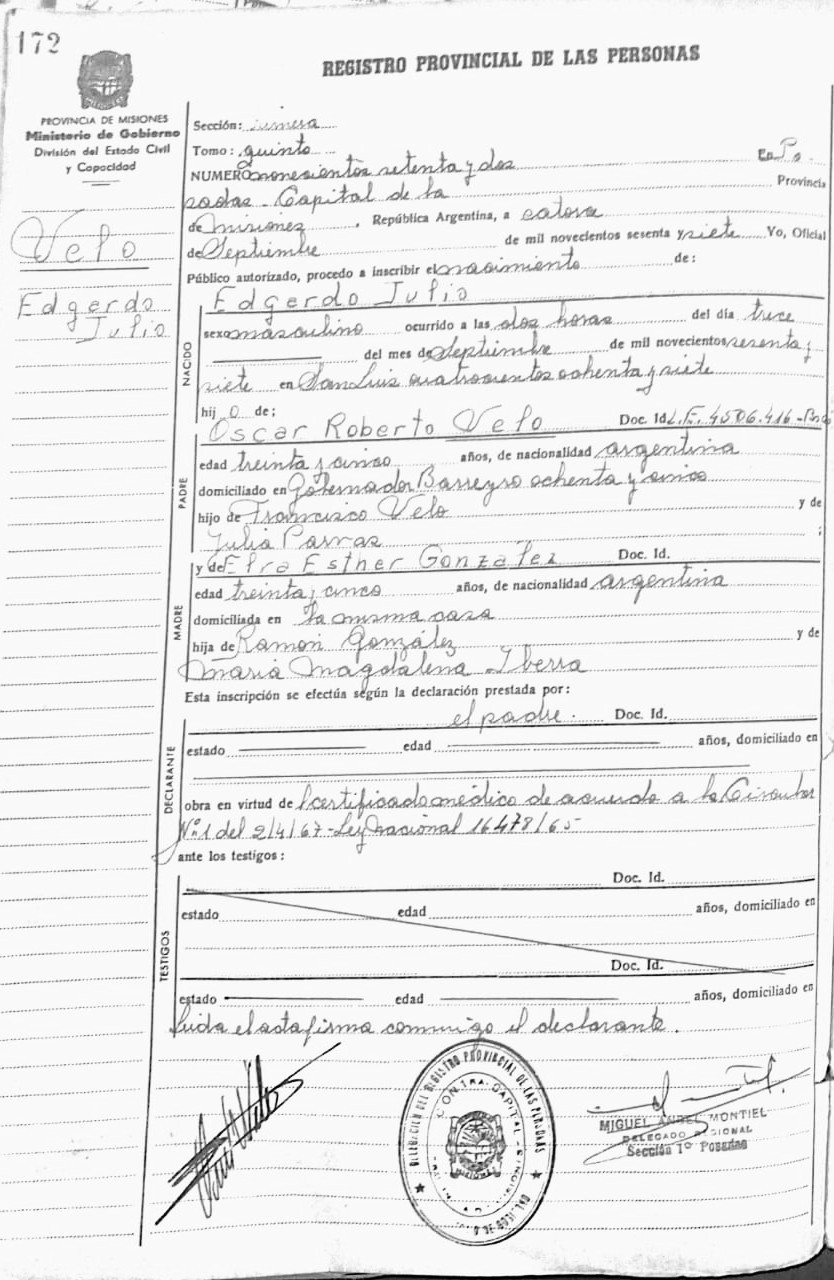 172
REGISTRO PROVINCIAL DE LAS PERSONAS
PROVINCIA DE MISIONES
Ministerio de Gobierno
División del Estado Civil
y Capacidad
Velo
Edgerdo
Julio
Sección: primera
Tomo: quinto
NUMERO novecientos setenta y dos En Po
sadas - Capital de la Provincia
de Misiones, República Argentina, a catorce
de Septiembre de mil novecientos sesenta y siete Yo, Oficial
Público autorizado, procedo a inscribir el nacimiento de:
NACIDO
Edgerdo Julio
sexo masculino ocurrido a las dos horas del día trece
del mes de Septiembre de mil novecientos sesenta y
siete en San Luis cuatrocientos ochenta y siete
hijo de;
PADRE
Oscar Roberto Velo Doc. Id. L.E. 4506.416
edad treinta y cinco años, de nacionalidad argentina
domiciliado en Gobernador Barreyro ochenta y cinco
hijo de Francisco Velo y de
Julia Parras ;
MADRE
y de Elra Esther González Doc. Id.
edad treinta y cinco años, de nacionalidad argentina
domiciliada en la misma casa
hija de Ramon González y de
Maria Magdalena Iberra
Esta inscripción se efectúa según la declaración prestada por:
DECLARANTE
el padre. Doc. Id.
estado edad años, domiciliado en
obra en virtud de certificado médico de acuerdo a la Circular
Nº.1 del 2/4/67-Ley Nacional 16478/65
ante los testigos:
TESTIGOS
Doc. Id.
estado edad años, domiciliado en
Doc. Id.
estado edad años, domiciliado en
Leida el acta firma conmigo el declarante.
DELEGACION DEL REGISTRO PROVINCIAL DE LAS PERSONAS
CAPITAL
MISIONES
MIGUEL ANGEL MONTIEL
DELEGADO REGIONAL
Sección 1º Posadas